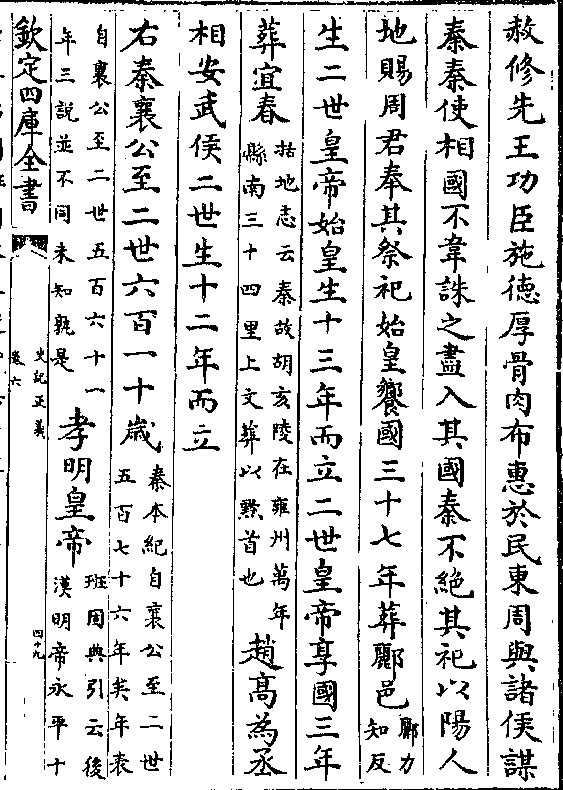 赦修先王功臣施德厚骨肉布惠於民東周與諸侯謀
秦秦使相國不韋誅之盡入其國秦不絕其祀以陽人
地賜周君奉其祭祀始皇饗國三十七年葬酈邑酈力知反
生二世皇帝始皇生十三年而立二世皇帝享國三年
葬宜春括地志云秦故胡亥陵在雍州萬年縣南三十四里上文葬以黔首也趙高為丞
相安武侯二世生十二年而立
右秦襄公至二世六百一十歲秦本紀自襄公至二世五百七十六年矣年表
自襄公至二世五百六十一年三說並不同未知孰是孝明皇帝班固典引云後漢明帝永平十
欽定四庫全書
史記正義
卷六
四十九